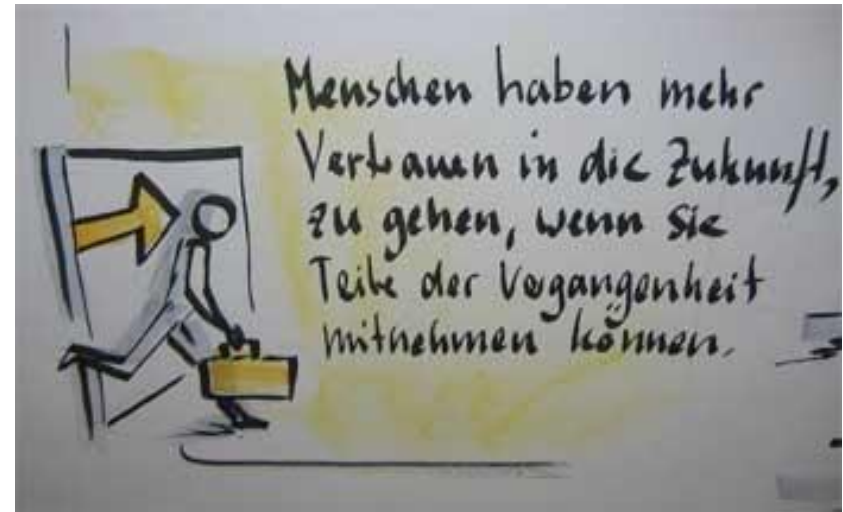 Menschen haben mehr
Vertrauen in die Zukunft,
zu gehen, wenn sie
Teile der Vergangenheit
mitnehmen können.